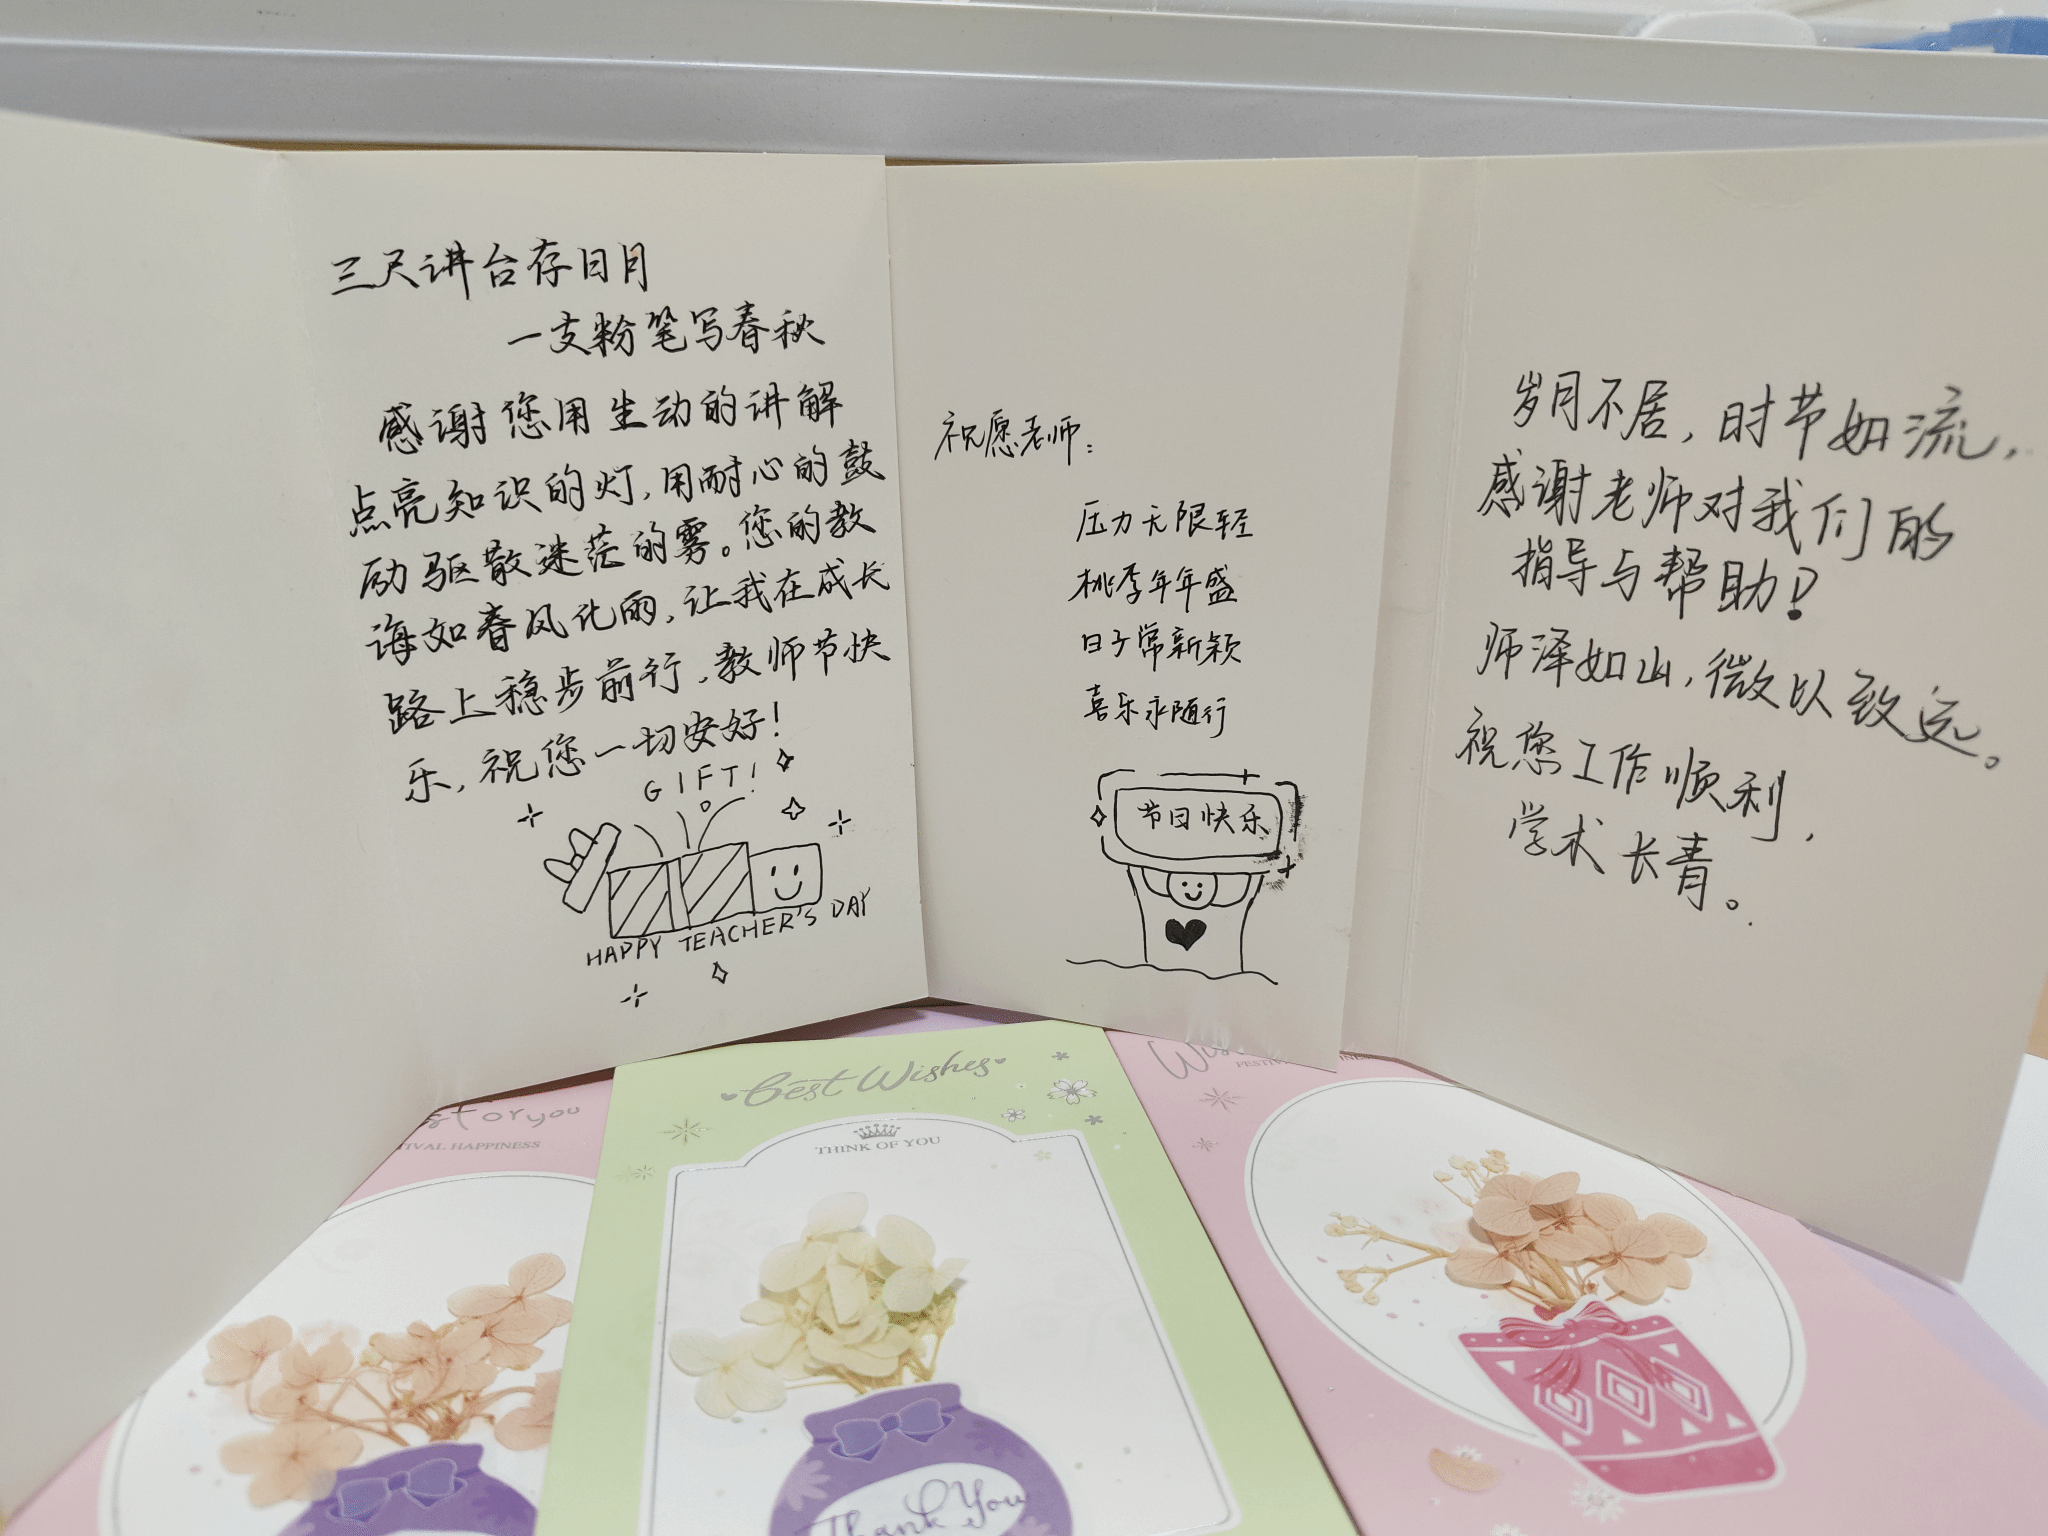 三尺讲台存日月
一支粉笔写春秋
感谢您用生动的讲解
点亮知识的灯，用耐心的鼓
励驱散迷茫的雾。您的教
诲如春风化雨，让我在成长
路上稳步前行，教师节快
乐，祝您一切安好！
GIFT!
HAPPY TEACHER'S DAY
祝愿老师：
压力无限轻
桃李年年盛
日子常新颖
喜乐永随行
节日快乐
岁月不居，时节如流，
感谢老师对我们的
指导与帮助！
师泽如山，微以致远。
祝您工作顺利，
学术长青。
oryou
TIVAL HAPPINESS
Best Wishes
THINK OF YOU
Thank You